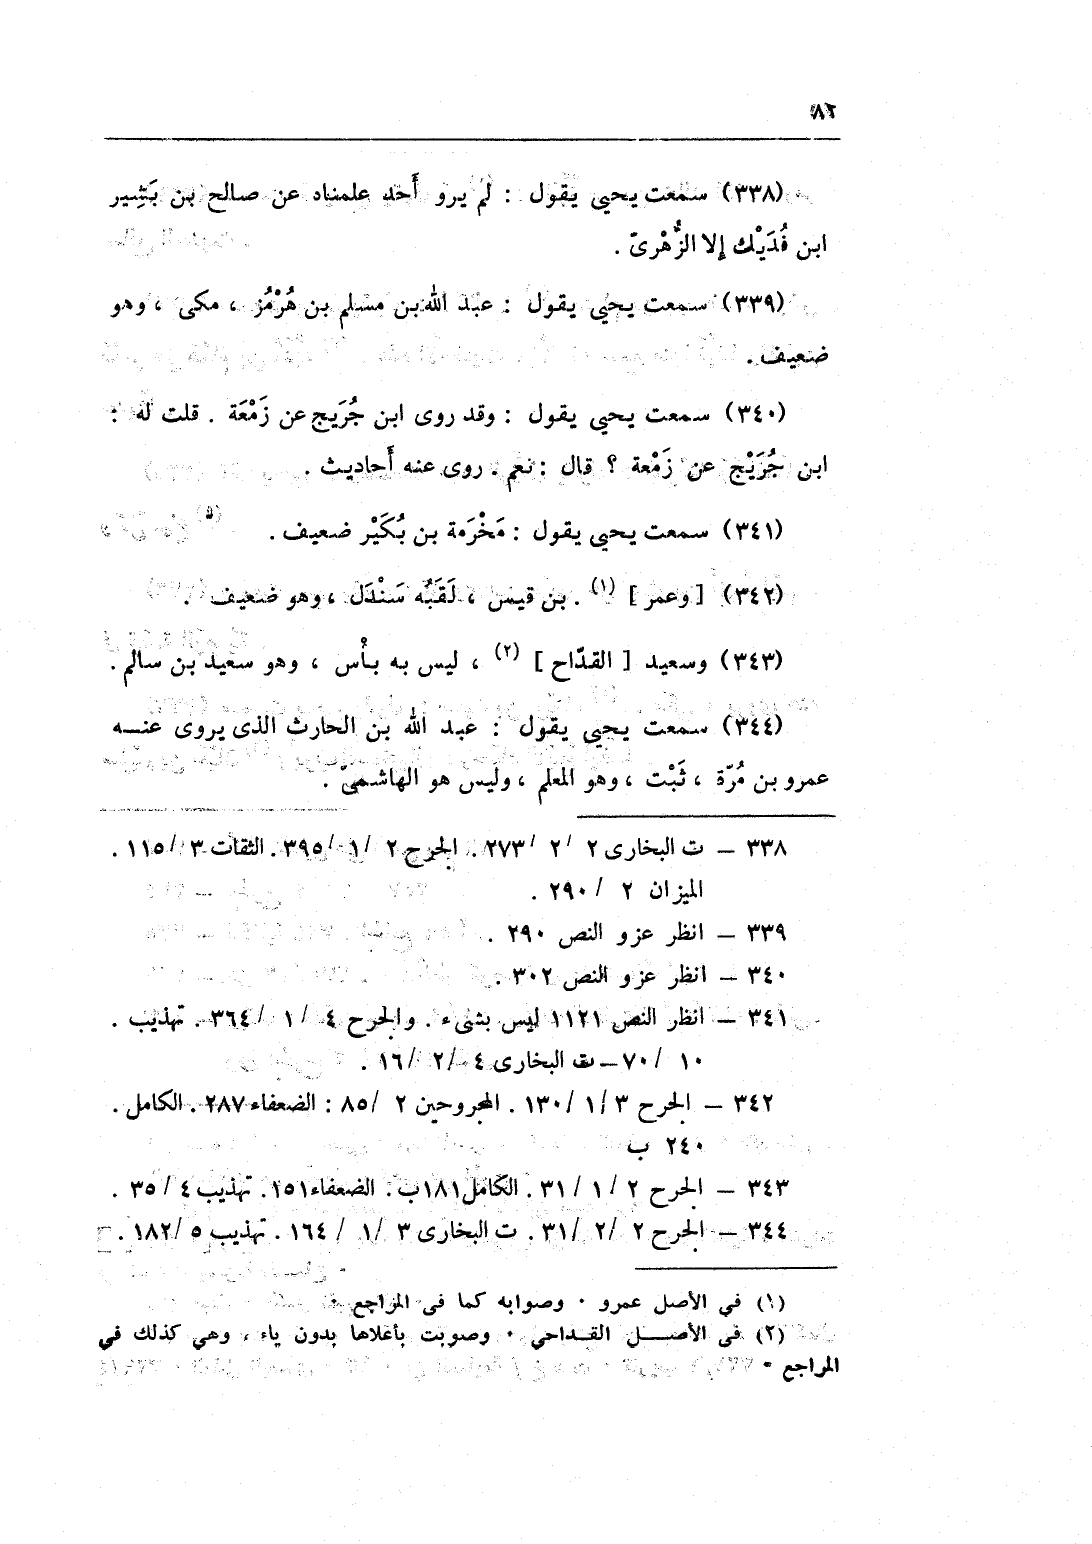 ٨٢
(٣٣٨) سمعت يحيى يقول : لم يرو أَحد علمناه عن صالح بن بَشِير
ابن فُدَيْك إلا الزُّهْرىّ .
(٣٣٩) سمعت يحيى يقول : عبد الله بن مسلم بن هُرْمُز ، مكى ، وهو
ضعيف .
(٣٤٠) سمعت يحيى يقول : وقد روى ابن جُرَيج عن زَمْعَة . قلت له :
ابن جُرَيْج عن زَمْعة ؟ قال : نعم . روى عنه أَحاديث .
(٣٤١) سمعت يحيى يقول : مَخْرَمة بن بُكَيْر ضعيف .
(٣٤٢) [ وعمر ] (١) . بن قيس ، لَقَبُه سَنْدَل ، وهو ضعيف .
(٣٤٣) وسعيد [ القدّاح ] (٢) ، ليس به بأْس ، وهو سعيد بن سالم .
(٣٤٤) سمعت يحيى يقول : عبد الله بن الحارث الذى يروى عنـــه
عمرو بن مُرّة ، ثَبْت ، وهو المعلم ، وليس هو الهاشمىّ .
٣٣٨ – ت البخارى ٢ / ٢ / ٢٧٣ . الجرح ٢ / ١ / ٣٩٥ . الثقات ٣ / ١١٥ .
الميزان ٢ / ٢٩٠ .
٣٣٩ – انظر عزو النص ٢٩٠ .
٣٤٠ – انظر عزو النص ٣٠٢ .
٣٤١ – انظر النص ١١٢١ ليس بشىء . والجرح ٤ / ١ / ٣٦٤ . تهذيب .
١٠ / ٧٠ – ت البخارى ٤ / ٢ / ١٦ .
٣٤٢ – الجرح ٣ / ١ / ١٣٠ . المجروحين ٢ / ٨٥ : الضعفاء ٢٨٧ . الكامل .
٢٤٠ ب
٣٤٣ – الجرح ٢ / ١ / ٣١ . الكامل ١٨١ب . الضعفاء ١٥١ . تهذيب ٤ / ٣٥ .
٣٤٤ – الجرح ٢ / ٢ / ٣١ . ت البخارى ٣ / ١ / ١٦٤ . تهذيب ٥ / ١٨٢ .
(١) في الأصل عمرو . وصوابه كما فى المراجع .
(٢) فى الأصـــل القـداحي . وصوبت بأعلاها بدون ياء ، وهي كذلك في
المراجع .